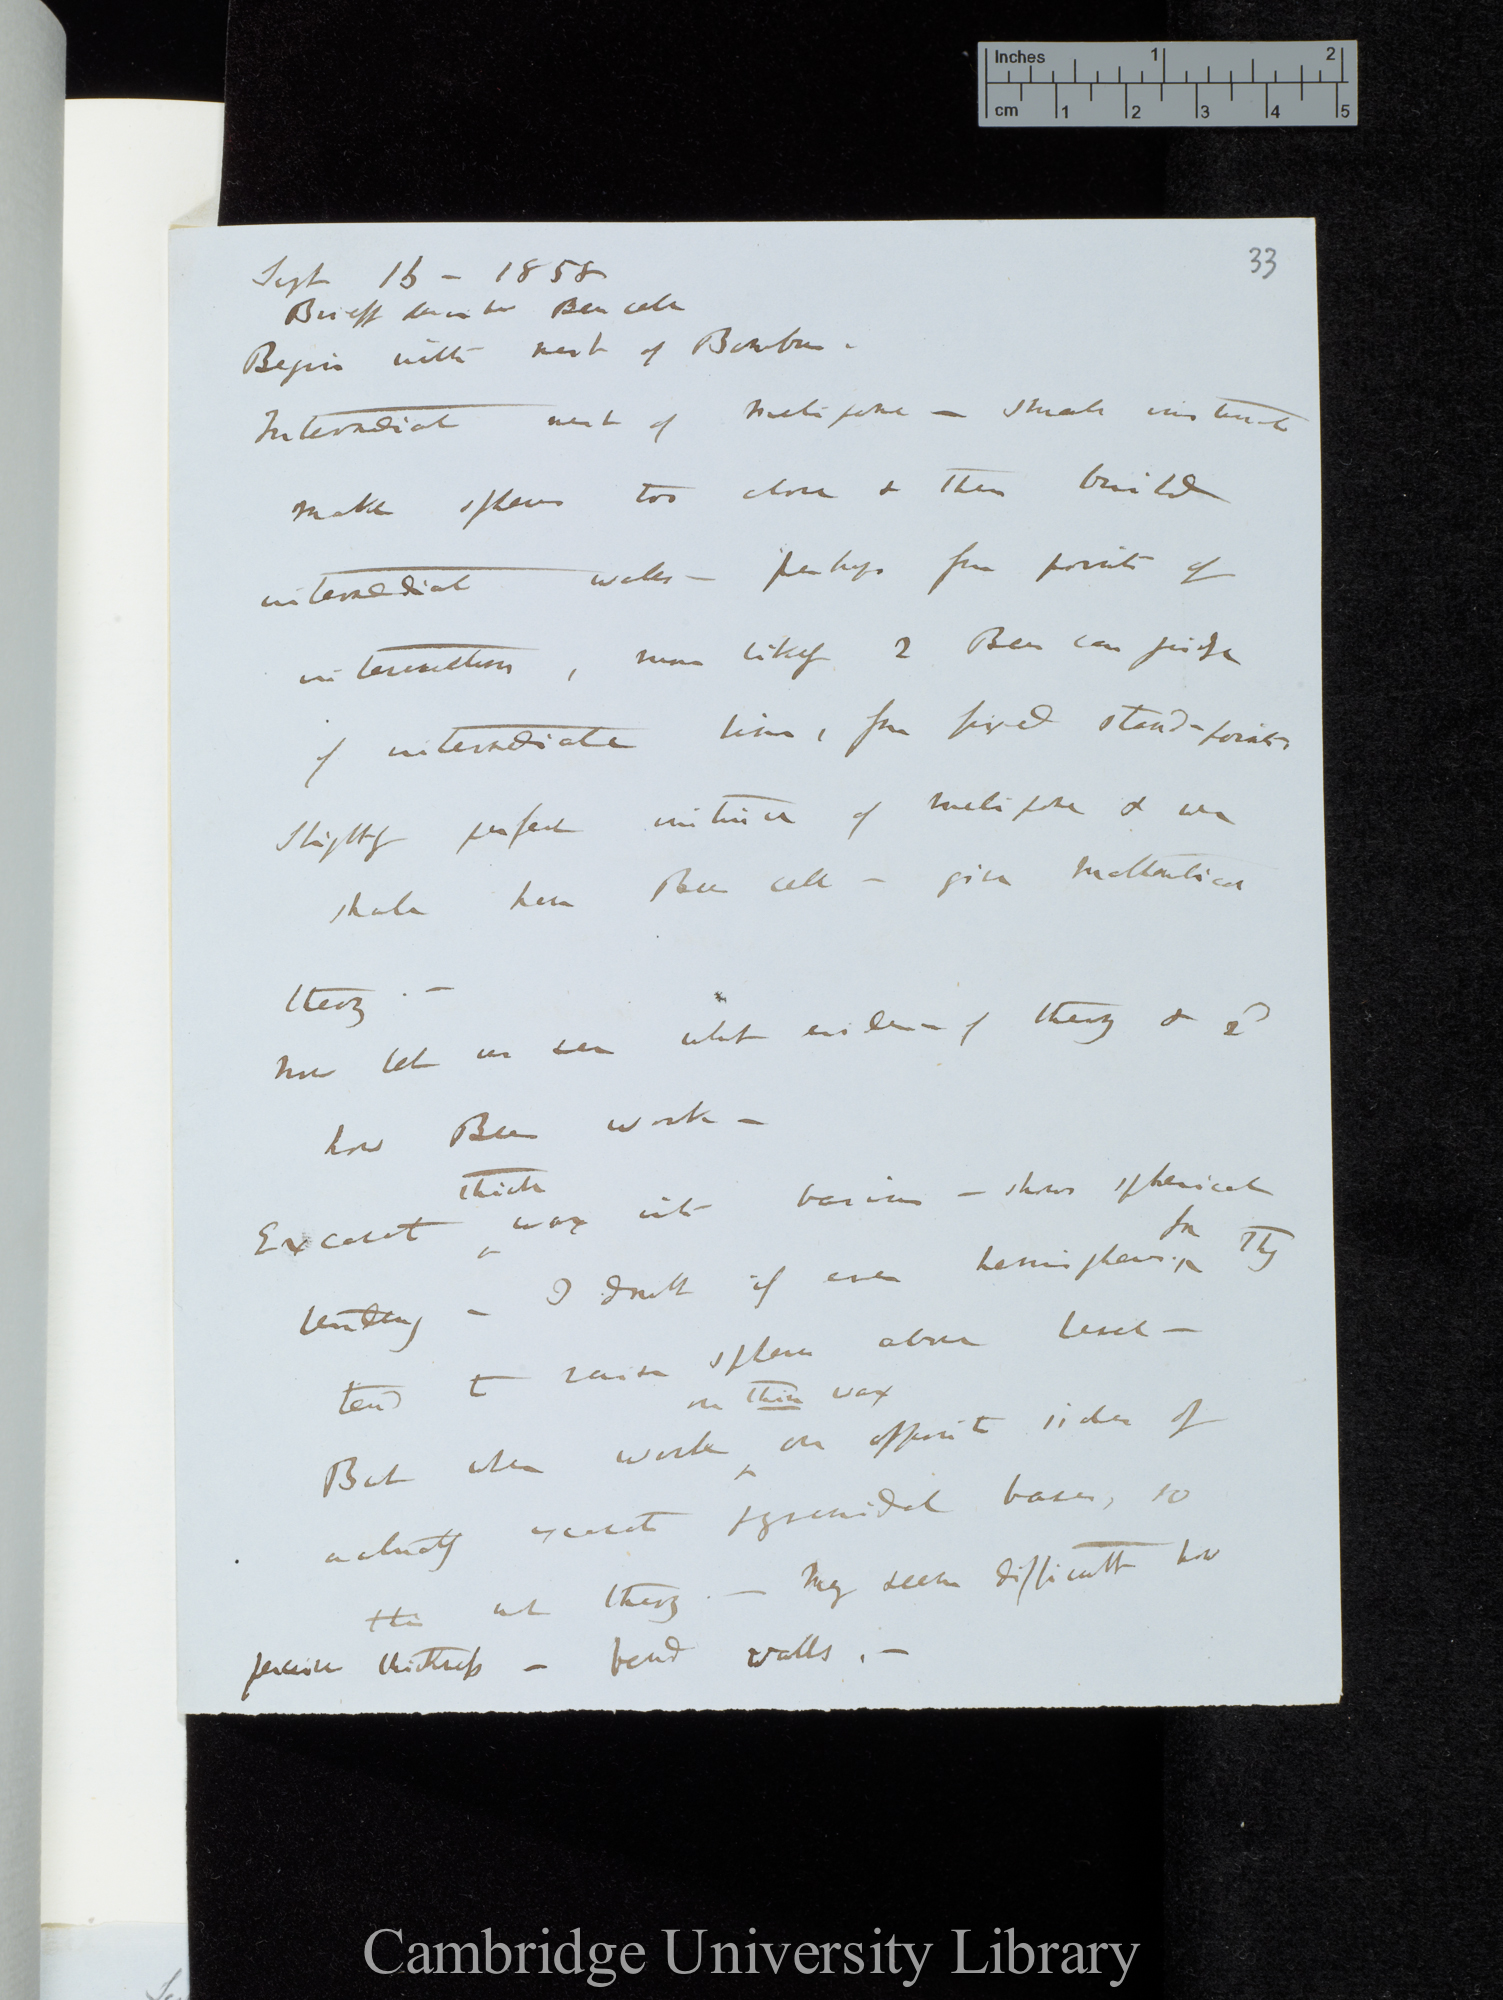 Inches 1 2
cm 1 2 3 4 5
33
Sept 16 – 1858
Briefly Bees cells
Begin with nest of Bombus.
Intermediate nest of Melipona – small instincts
make spheres too close & then build
intermediate walls – perhaps from points of
intersection, more likely 2 Bees can judge
of intermediate line, from fixed stand-points
Slightly perfect instinct of Melipona & we
shall have Bee cell – give mathematical
theory. –
Now let us see what evidence of theory & 2d
how Bees work –
thick
Excavate wax into basins – shows spherical
for
tendency – I doubt if even hemispheres, They
tend to raise sphere above level –
on thin wax
But when work on opposite sides of
actually excavate pyramidal bases, so
this theory. – May seem difficult how
perceive thickness – bend walls. –
Cambridge University Library